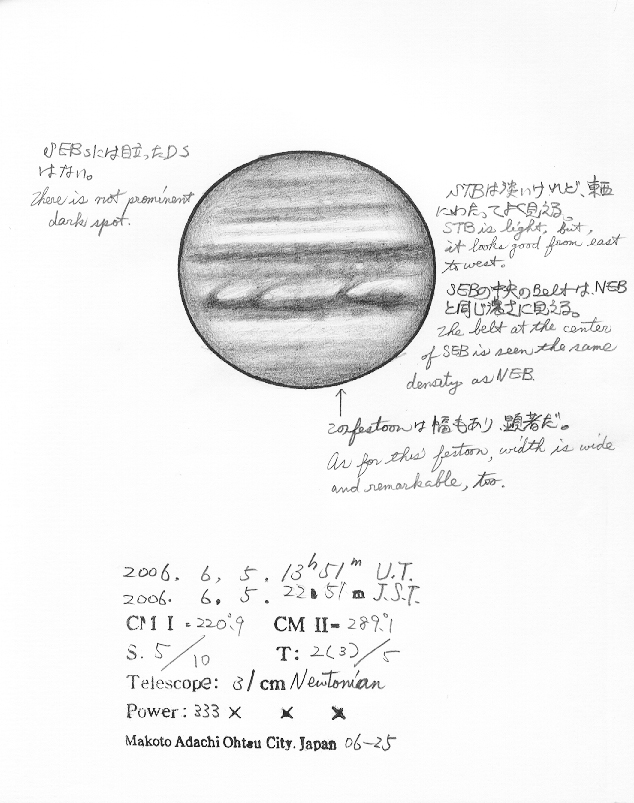 SEBsには目立ったDS
はない。
There is not prominent
dark spot.
STBは淡いけれど、東西
にわたってよく見える。
STB is light, but,
it looks good from east
to west.
SEBの中央のBeltは、NEB
と同じ濃さに見える。
The belt at the center
of SEB is seen the same
density as NEB.
このfestoonは幅もあり、顕著だ。
As for this festoon, width is wide
and remarkable, too.
2006. 6. 5. 13h51m U.T.
2006. 6. 5. 22h51m J.S.T.
CM I = 220.°9 CM II= 289.°1
S. 5/10 T: 2(3)/5
Telescope: 31cm Newtonian
Power: 333 × × ×
Makoto Adachi Ohtsu City. Japan 06-25